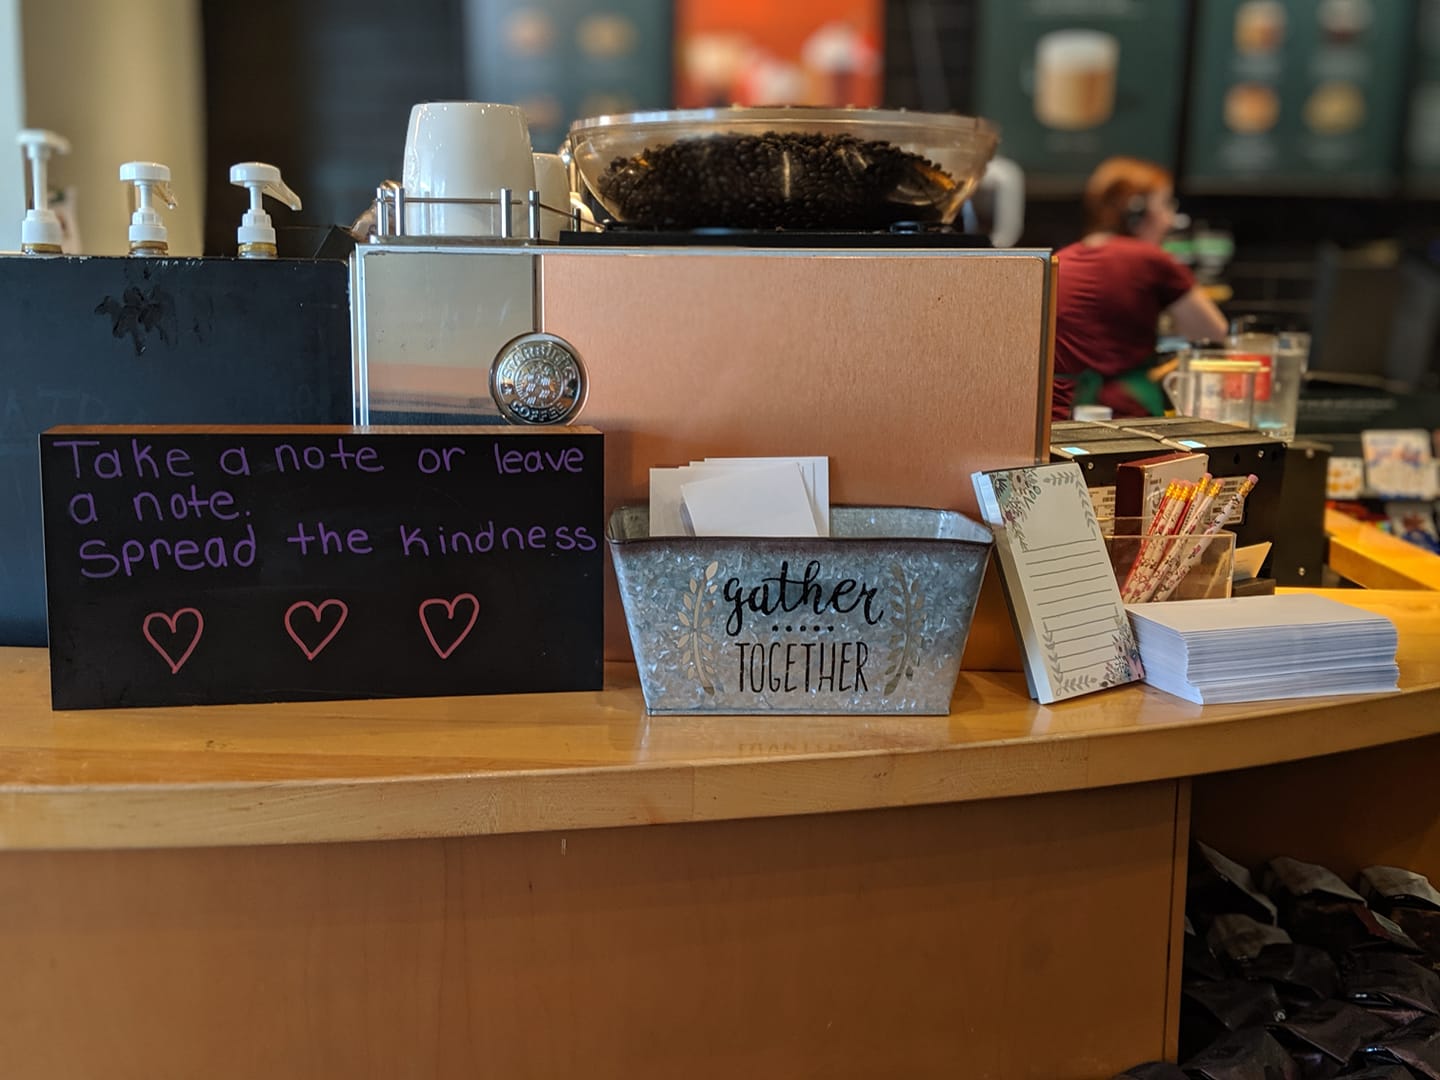 Take a note or leave
a note.
Spread the kindness
STARBUCKS
COFFEE
gather
TOGETHER